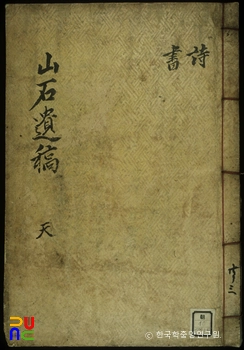 詩
書
山石遺稿
天
共三
© 한국학중앙연구원